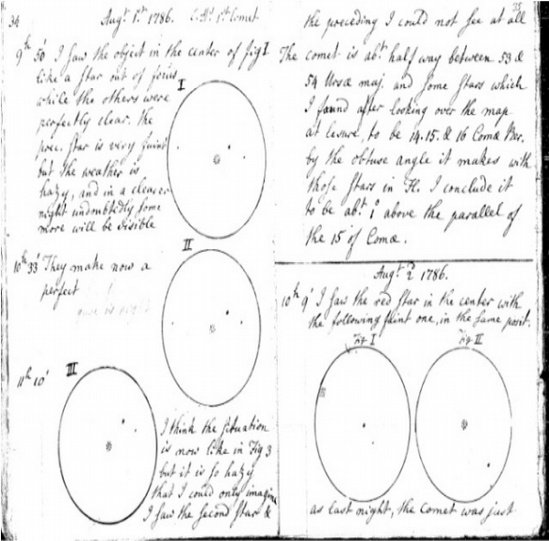 34
Augt 1st 1786. C.H's 1st Comet
9h 50' I saw the object in the center of fig I
like a star out of focus
while the others were
perfectly clear. the
prec. star is very faint
but the weather is
hazy, and in a clearer
night undoubtedly some
more will be visible
I
II
10h 33' They make now a
perfect
11h 10'
III
I think the situation
is now like in Fig 3
but it is so hazy
that I could only imagine
I saw the second star &
35
the preceding I could not see at all
The comet is abt half way between 53 &
54 Ursæ maj. and some stars which
I found after looking over the map
at lesure, to be 14. 15. & 16 Comæ Ber.
by the obtuse angle it makes with
those stars in Fl. I conclude it
to be abt 1° above the parallel of
the 15 of Comæ.
Augt 2 1786.
10h 9' I saw the red star in the center with
the following faint one, in the same posit.
Fig I
Fig II
as last night, the Comet was just